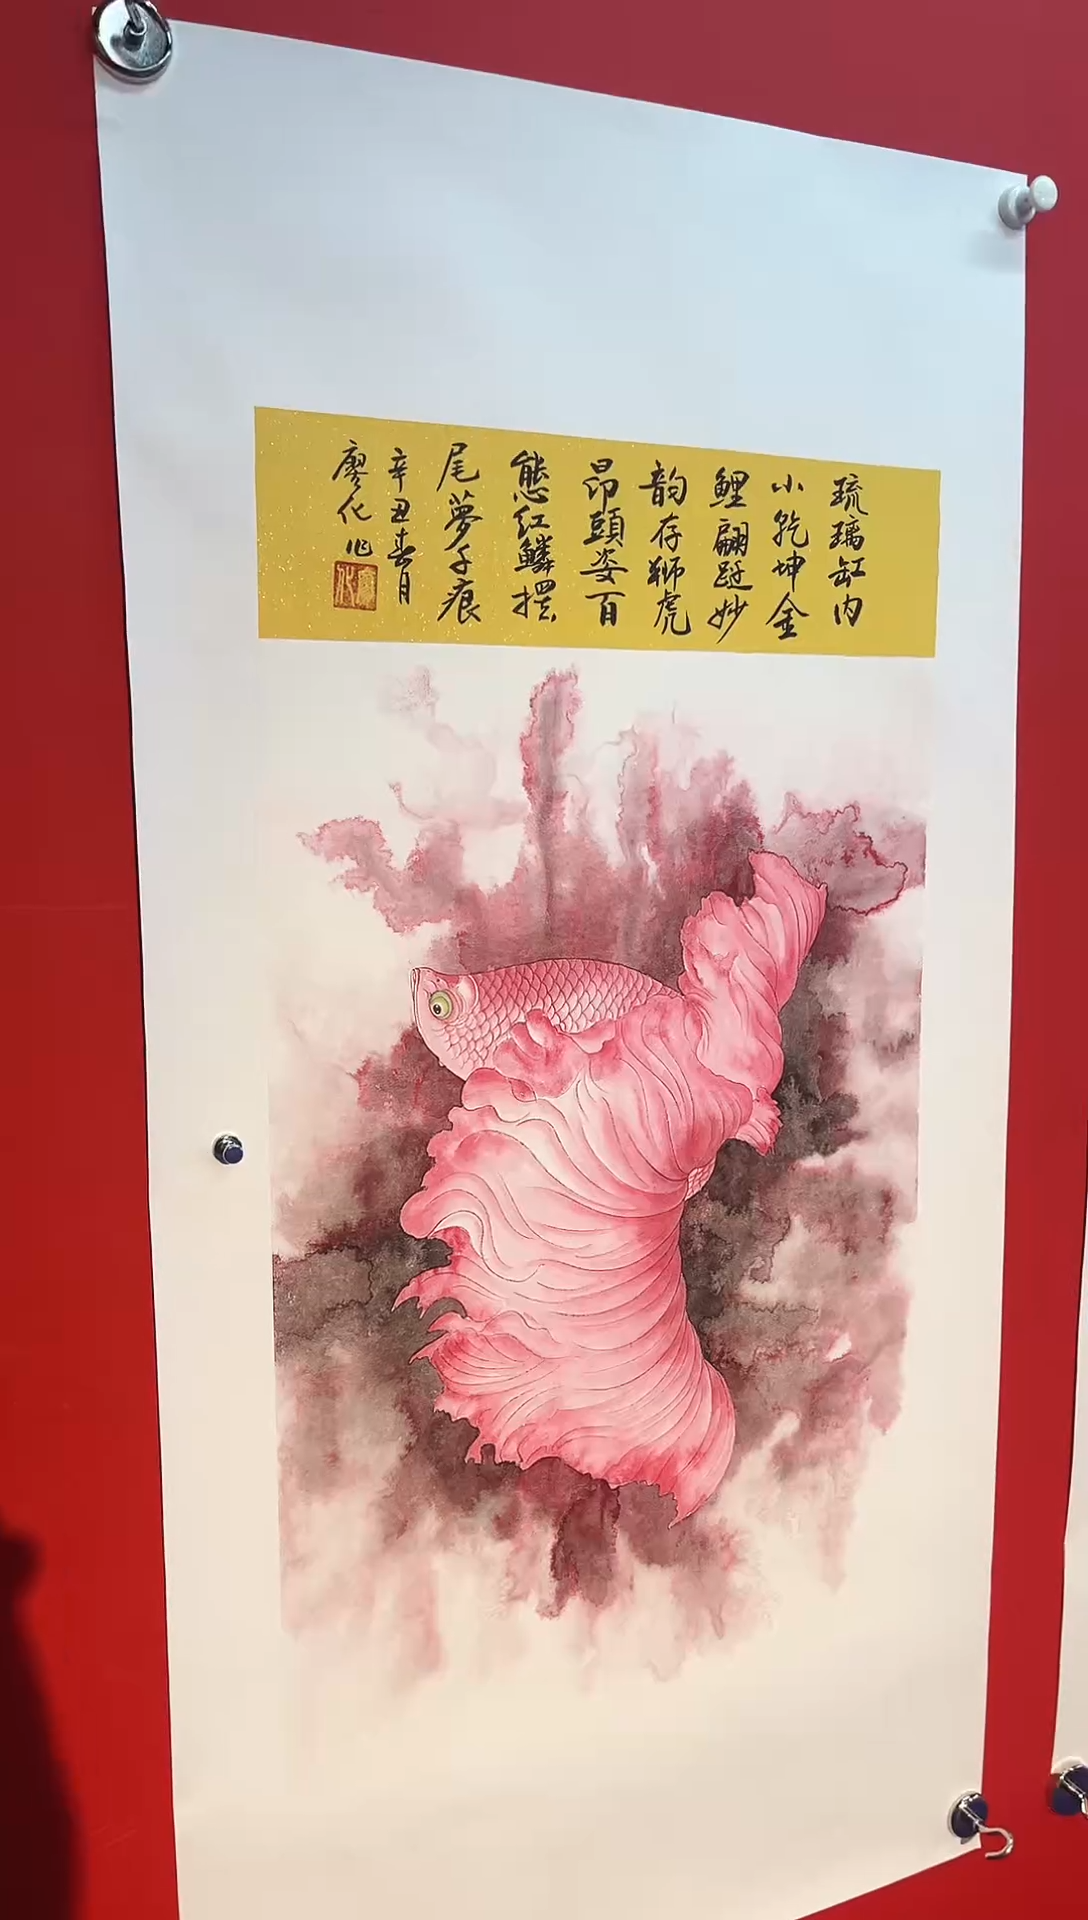 琉璃缸内
小乾坤金
鲤翩跹妙
韵存狮虎
昂頭姿百
態红鳞摆
尾夢千痕
辛丑春月
廖化作